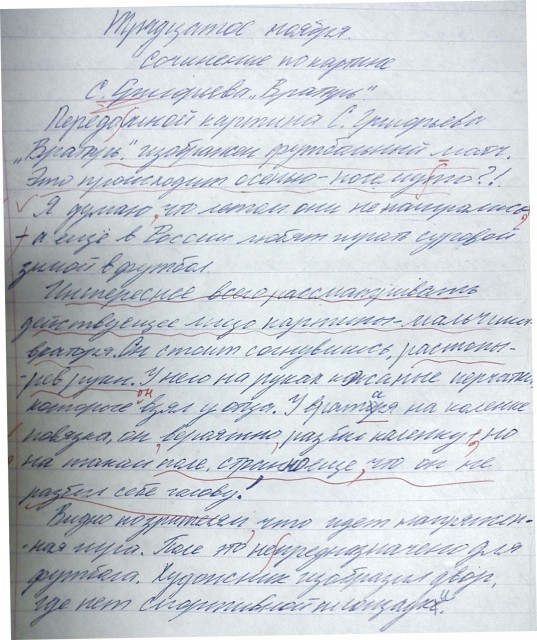 Тридцатое ноября.
Сочинение по картине
С. Григорьева „Вратарь"
Передо мной картина С. Григорьева
„Вратарь". изображен футбольный матч.
Это происходит осенью - почему-то?!.
Я думаю, что летом они не наигрались,
а ещё в России любят играть суровой
зимой в футбол.
Интереснее всего рассматривать
действующее лицо картины - мальчика
вратаря. Он стоит согнувшись, растопы-
-рив руки. У него на руках кожаные перчатки,
которые он взял у отца. У вратаря на коленке
повязка, он, вероятно, разбил коленку, но
на таком поле, странно еще, что он не
разбил себе голову!
Видно по зрителям, что идет напряжен-
-ная игра. Поле это не предназначено для
футбола. Художник изобразил двор,
где нет спортивной площадки.